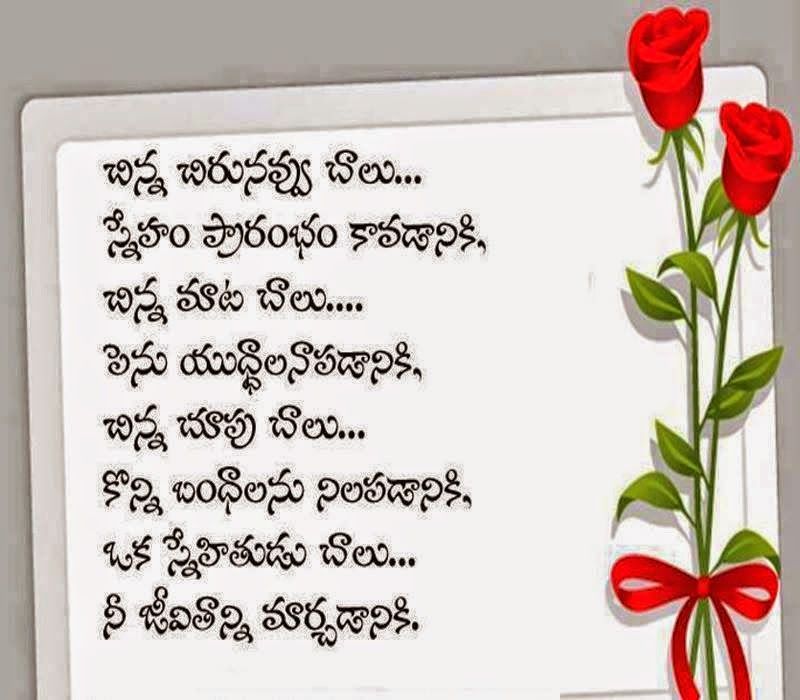 చిన్న చిరునవ్వు చాలు...
స్నేహం ప్రారంభం కావడానికి,
చిన్న మాట చాలు....
పెను యుద్ధాలనాపడానికి,
చిన్న చూపు చాలు...
కొన్ని బంధాలను నిలపడానికి,
ఒక స్నేహితుడు చాలు...
నీ జీవితాన్ని మార్చడానికి.